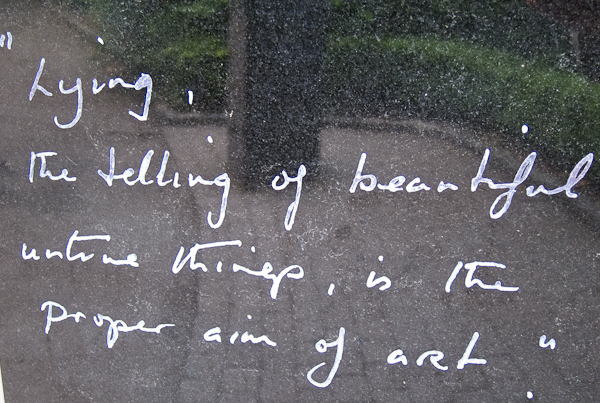 "Lying,
the telling of beautiful
untrue things, is the
proper aim of art".